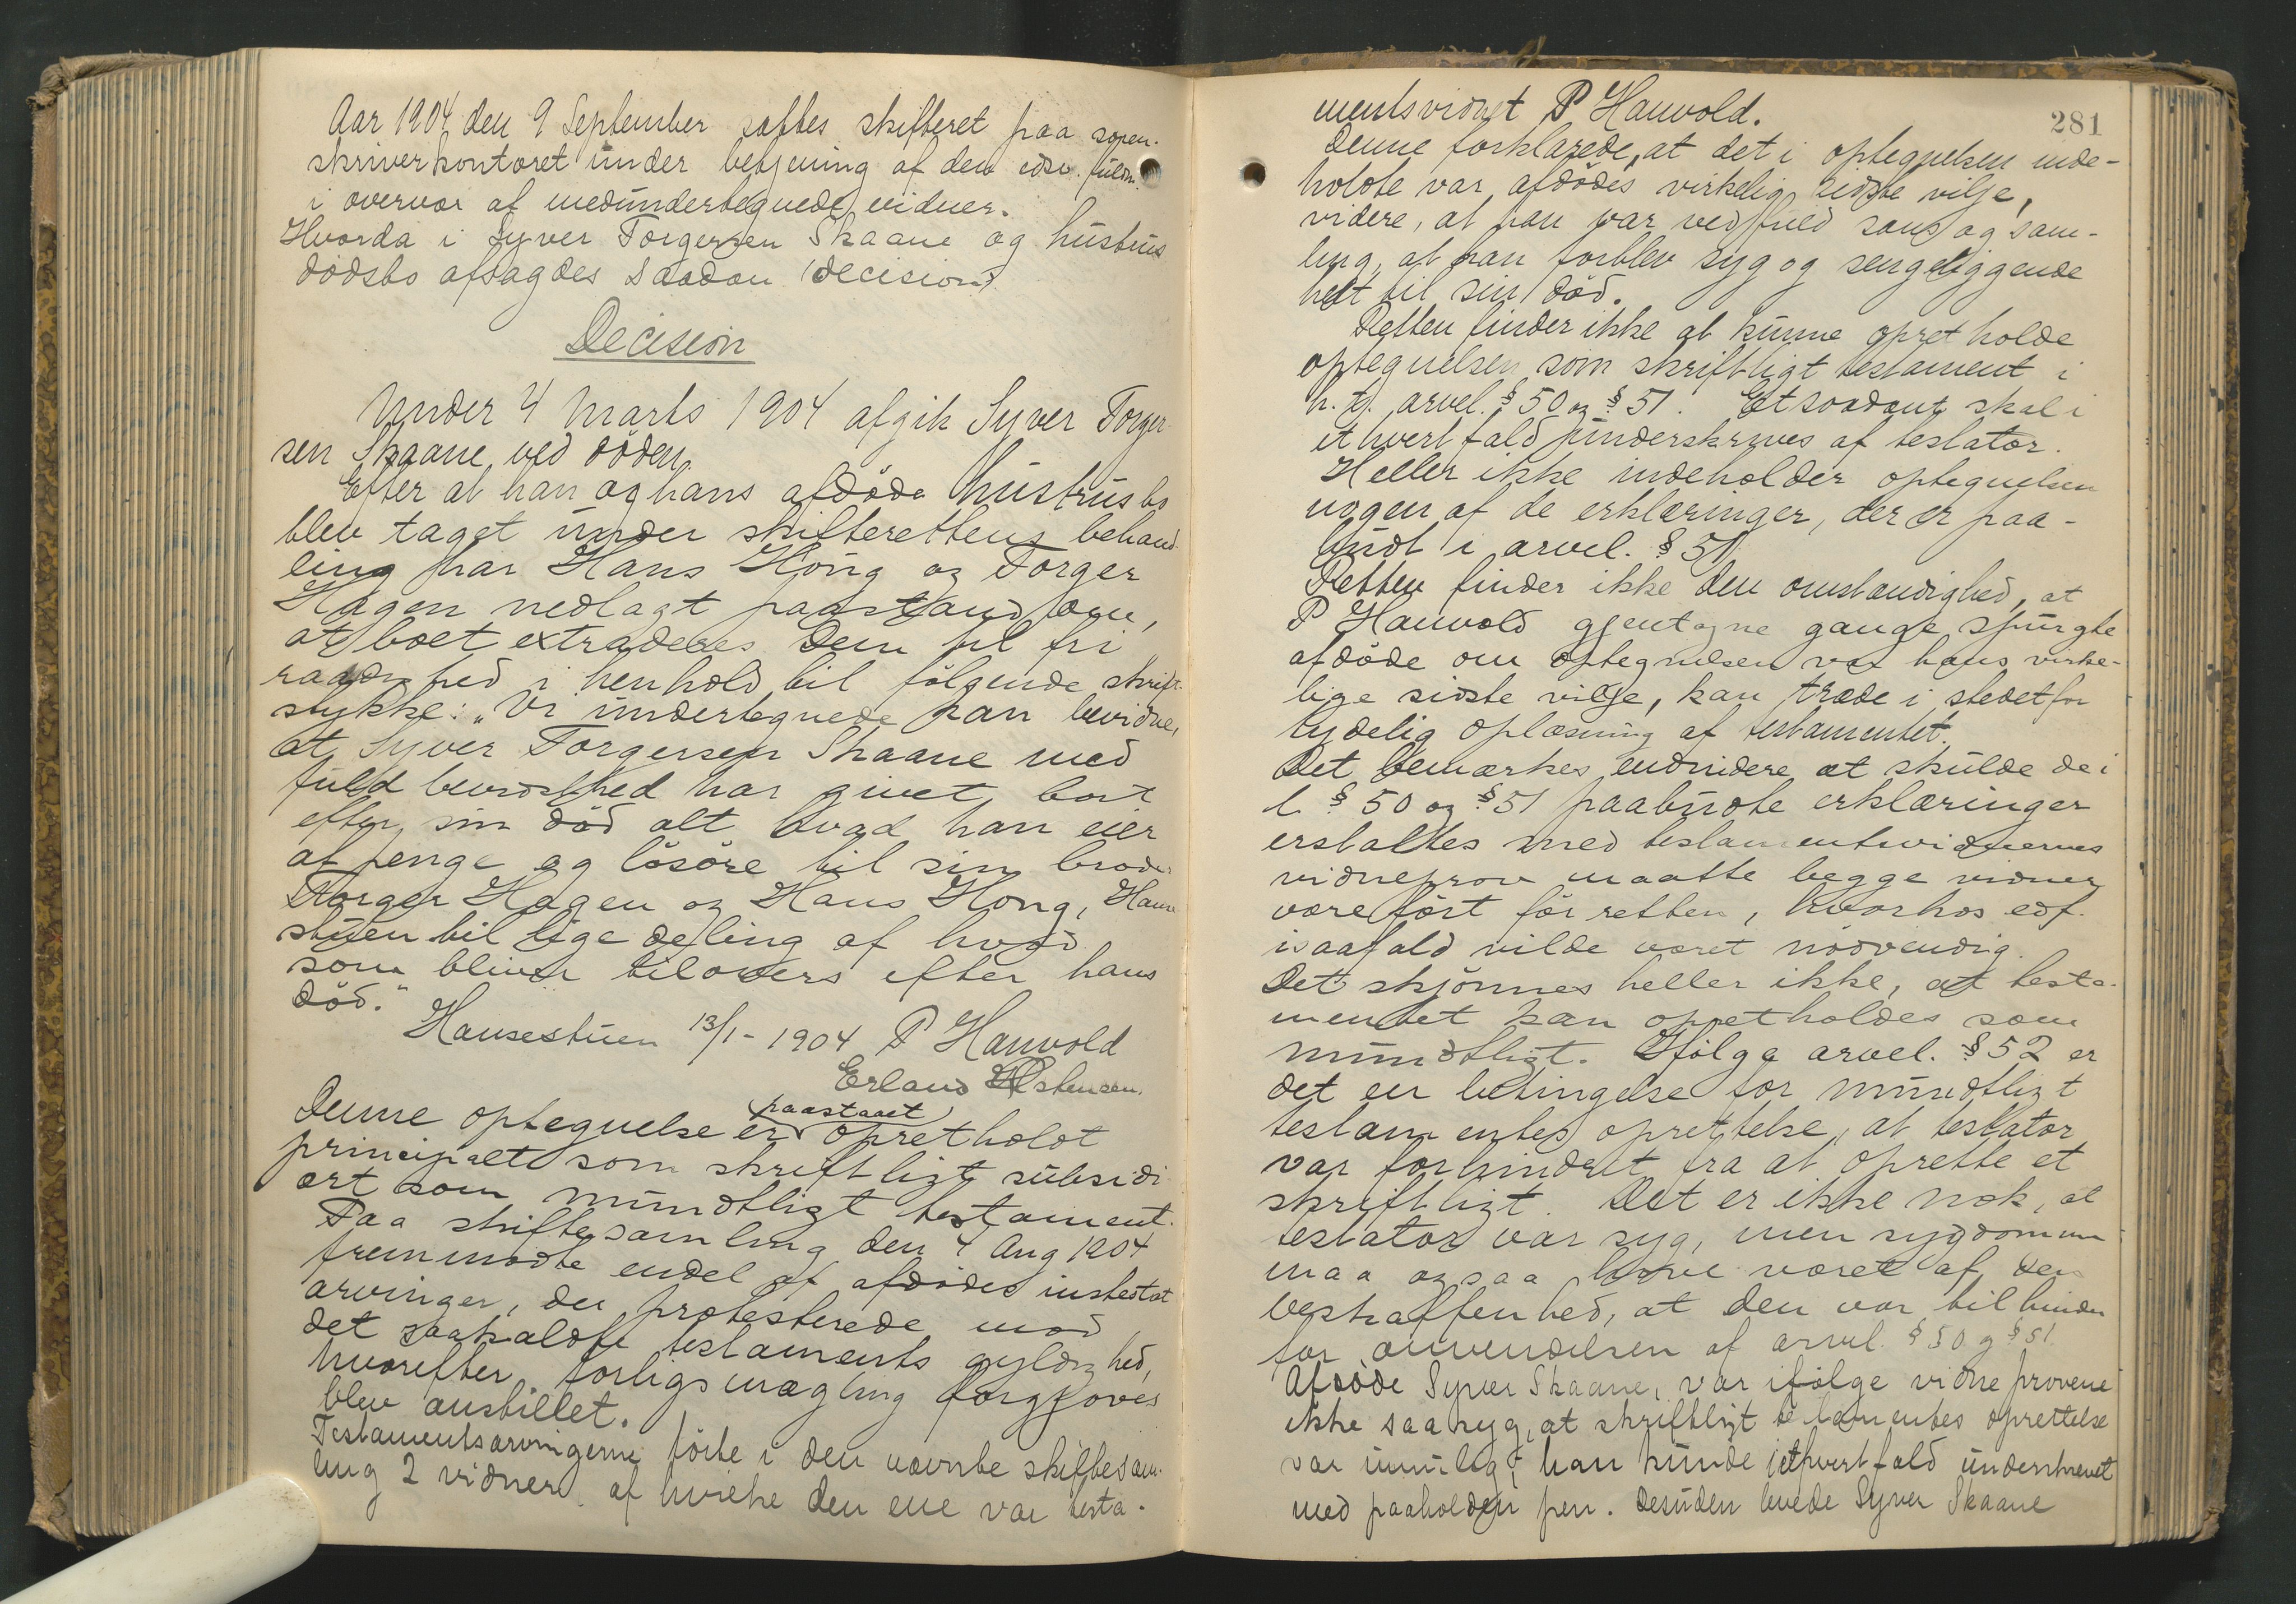 Aar 1904 den 9 September sattes skifteret paa soren-
skriverkontoret under betjening af den edsv. fuldm.
i overvær af medundertegnede vidner.
Hvorda i Syver Torgersen Skaane og hustrus
dödsbo afsagdes saadan decision:
Decision
Under 4 Marts 1904 afgik Syver Torger-
sen Skaane ved döden.
Efter at han og hans afdöde hustrus bo
blev taget under skifterettens behand-
ling har Hans Höng og Torger
Hagen nedlagt paastand om,
at boet extraderes dem til fri
raadighed i henhold til fölgende skrift-
stykke: "Vi undertegnede kan bevidne,
at Syver Torgersen Skaane med
fuld bevidsthed har givet bort
efter sin död alt hvad han eier
af penge og lösöre til sin broder
Torger Hagen og Hans Höng, Hanse-
stuen til lige deling af hvad
som bliver tilovers efter hans
död."
Hansestuen 13/1-1904 P Hanvold
Erland Østensen.
Denne optegnelse er paastaaet opretholdt
principalt som skriftligt subsidi-
ært som mundtligt testament.
Paa skiftesamling den 4 Aug 1904
fremmödte endel af afdödes intestat
arvinger, der protesterede mod
det saakaldte testaments gyldighed,
hvorefter forligsmægling forgjæves
blev anstillet.
Testamentsarvingerne förte i den nævnte skiftesam-
ling 2 vidner, af hvilke den ene var testa-
281
mentsvidnet P Hanvold.
Denne forklarede, at det i optegnelsen inde-
holdte var afdödes virkelig sidste vilje,
videre, at han var ved fuld sans og sam-
ling, at han forblev syg og sengeliggende
helt til sin död.
Retten finder ikke at kunne opretholde
optegnelsen som skriftligt testament i
h. t. arvel. § 50 og § 51. Et saadant skal i
ethvert fald underskrives af testator.
Heller ikke indeholder optegnelsen
nogen af de erklæringer, der er paa-
budt i arvel. § 51.
Retten finder ikke den omstændighed, at
P Hanvold gjentagne gange spurgte
afdöde om optegnelsen var hans virke-
lige sidste vilje, kan træde i stedet for
tydelig oplæsning af testamentet.
Det bemærkes endvidere at skulde de i
l. § 50 og § 51 paabudte erklæringer
erstattes med testamentsvidnernes
vidneprov maatte begge vidner
være fört för retten, hvorhos edf.
isaafald vilde været nödvendig.
Det skjönnes heller ikke, at testa-
mentet kan opretholdes som
mundtligt. Ifölge arvel. § 52 er
det en betingelse for mundtligt
testamentes oprettelse, at testator
var forhindret fra at oprette et
skriftligt. Det er ikke nok, at
testator var syg, men sygdommen
maa ogsaa have været af den
beskaffenhed, at den var til hinder
for anvendelsen af arvel. § 50 og § 51.
Afdöde Syver Skaane, var ifölge vidneprovene
ikke saa syg, at skriftligt testamentes oprettelse
var umulig; han kunde iethvertfald underskrevet
med paaholden pen. Desuden levede Syver Skaane